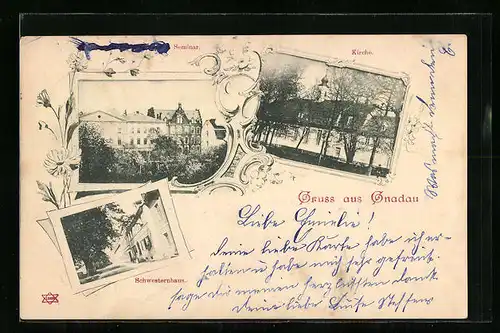 Seminar.
Kirche.
Gruss aus Gnadau
Schwesternhaus.
Liebe Emilie!
deine liebe Karte habe ich er-
halten u habe mich sehr gefreut.
sage dir meinen herzlichsten dank
deine liebe Luise Steffens